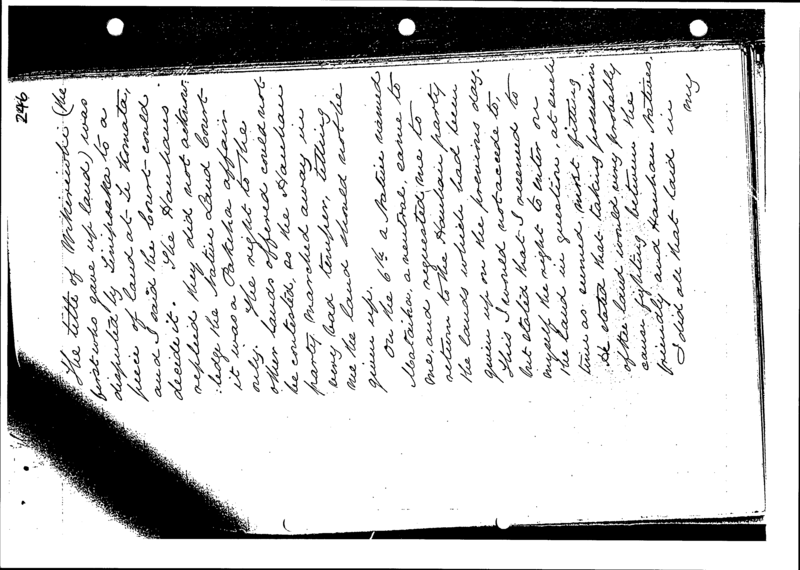 246
The title of Wikiriwhi (the
first who gave up land) was
disputed by to a
piece of land at Te Komata,
and I said the Court could
decide it. The Hauhaus
replied they did not acknow-
ledge the Native Land Court
it was a Pakeha affair
only. The right to the
other lands offered could not
be contested, as the Hauhau
party marched away in
very bad temper, telling
me the land should not be
given up.
On the 6th a Native named
Mataika a neutral, came to
me and requested me to
return to the Hauhau party
the lands which had been
given up on the previous day.
This I would not accede to,
but stated that I reserved to
myself the right to enter on
the land in question, at such
time as seemed most fitting
He stated that taking possession
of the land would very probably
cause fighting between the
friendly and Hauhau Natives.
I did all that laid in
my